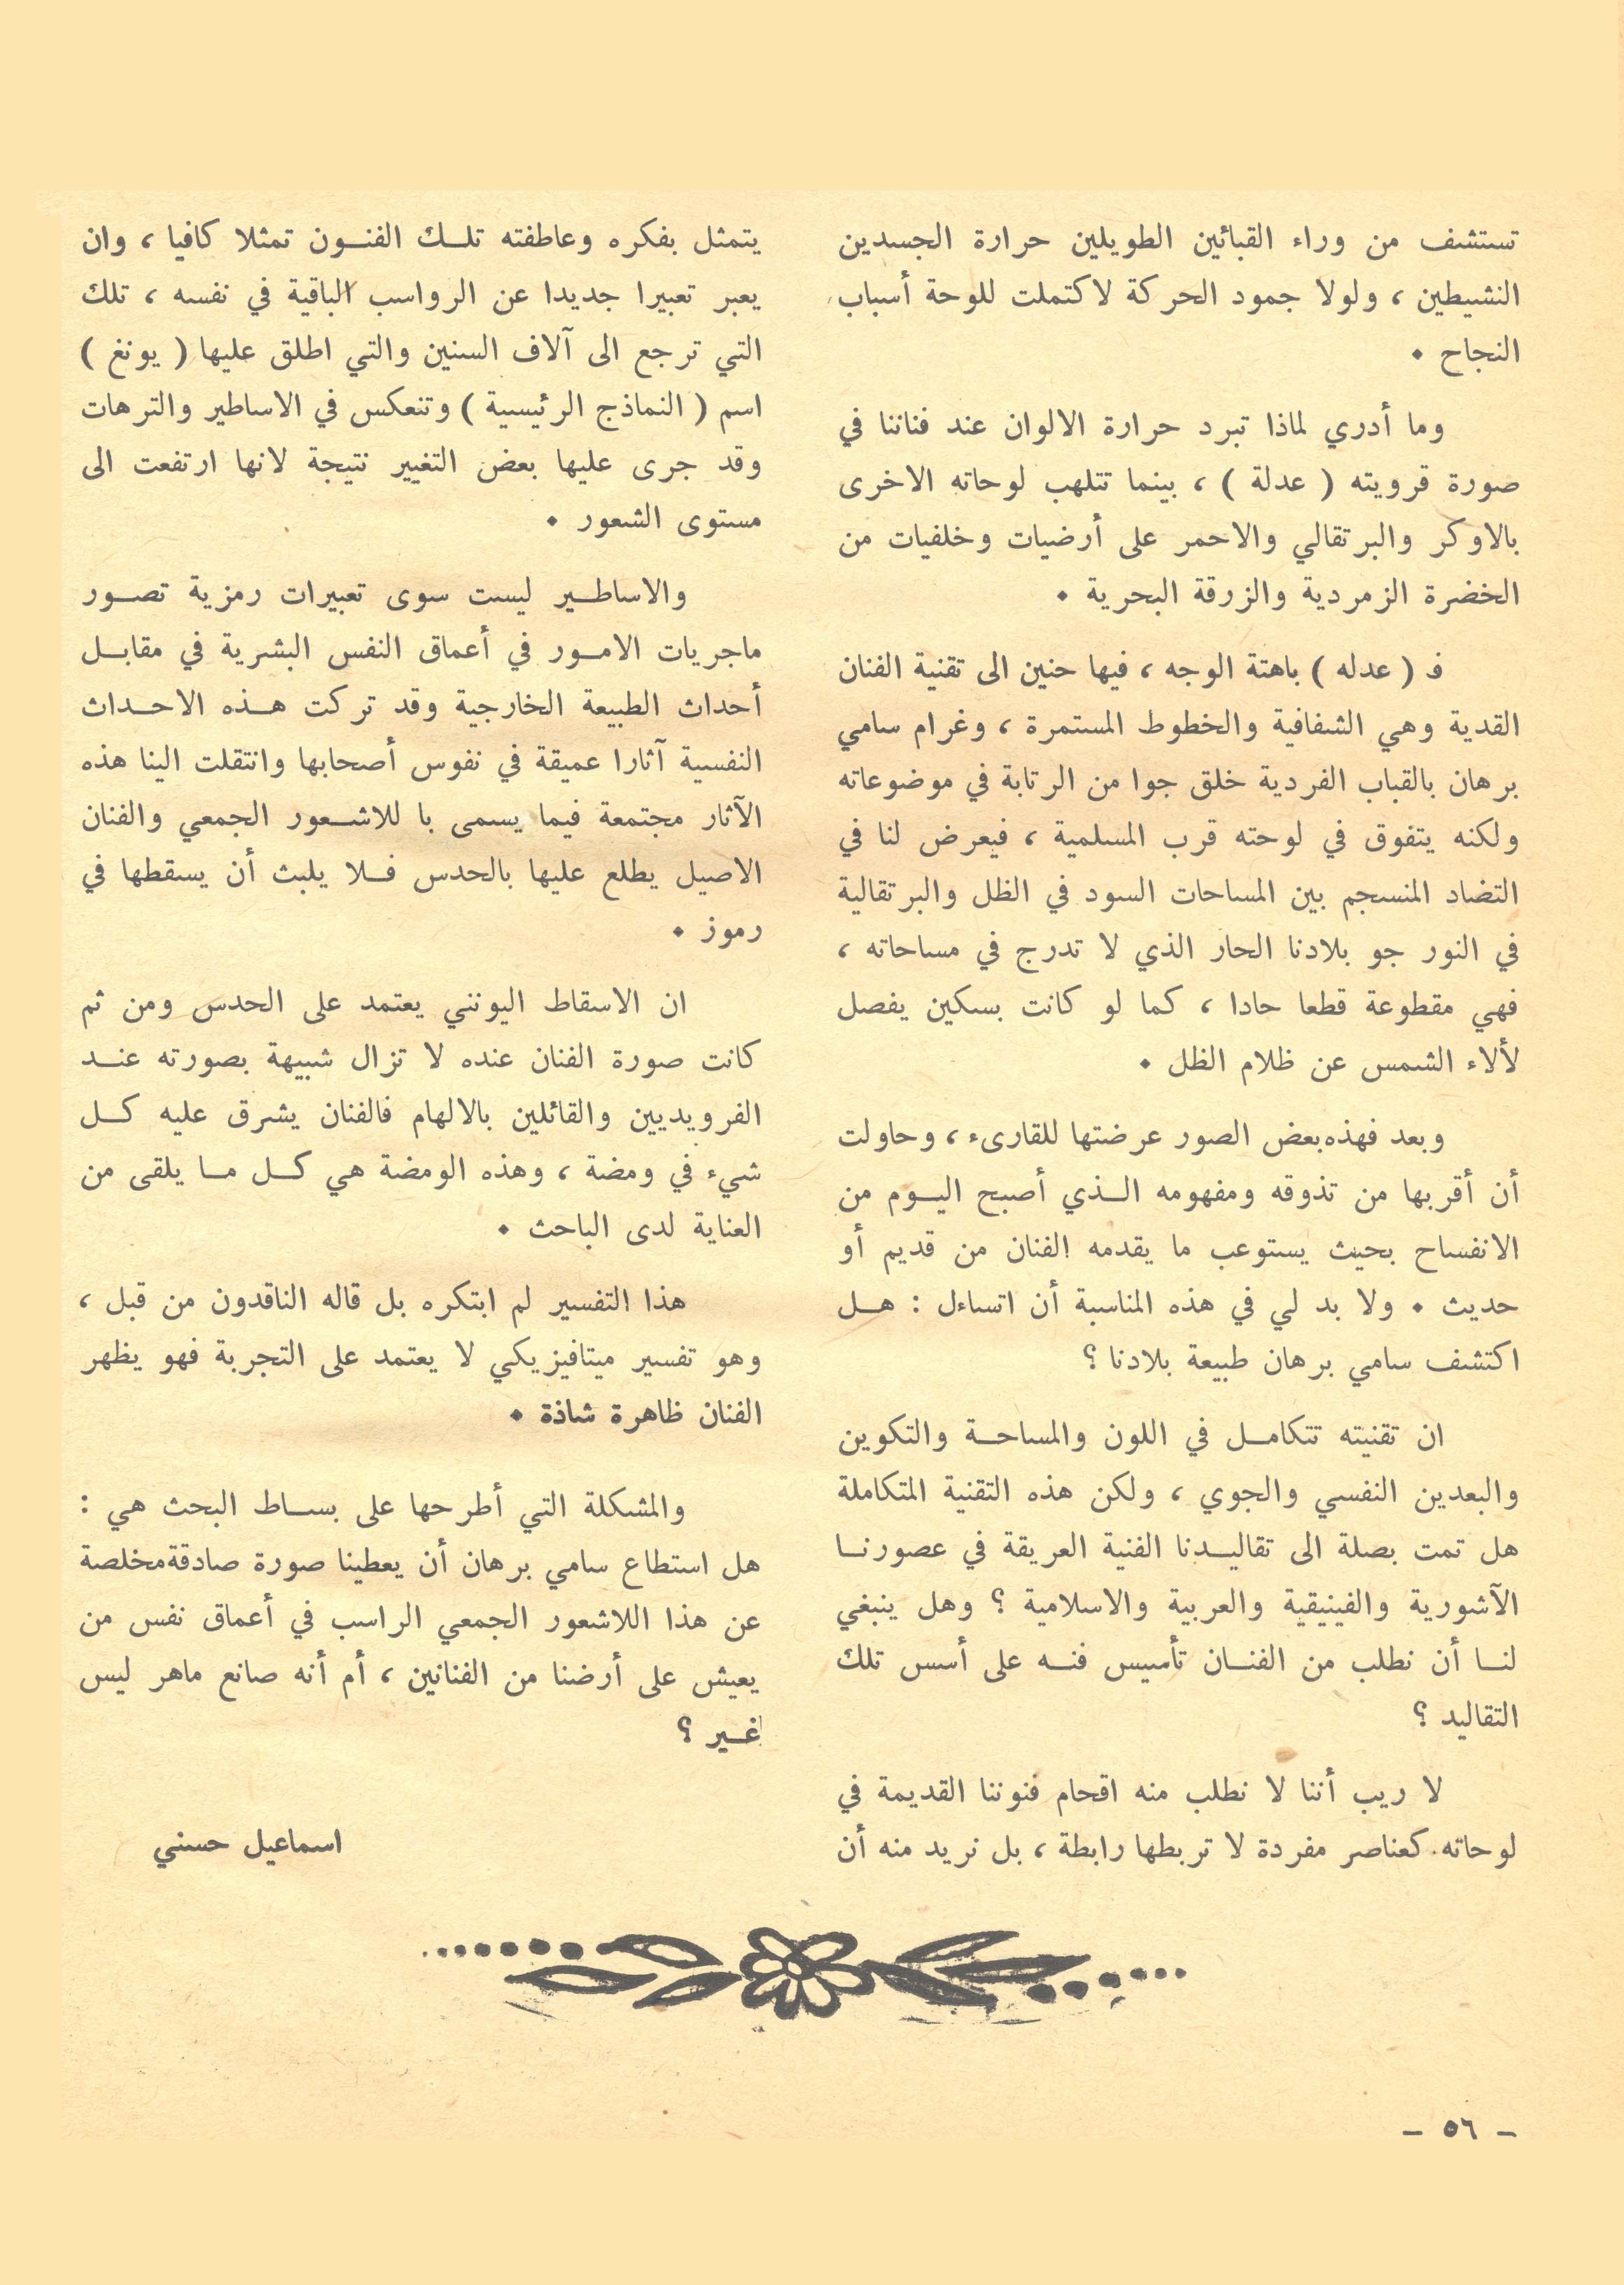 تستشف من وراء القبائين الطويلين حرارة الجسدين
النشيطين ، ولولا جمود الحركة لاكتملت للوحة أسباب
النجاح ٠
وما أدري لماذا تبرد حرارة الالوان عند فناننا في
صورة قرويته ( عدلة ) ، بينما تتلهب لوحاته الاخرى
بالاوكر والبرتقالي والاحمر على أرضيات وخلفيات من
الخضرة الزمردية والزرقة البحرية ٠
فـ ( عدله ) باهتة الوجه ، فيها حنين الى تقنية الفنان
القدية وهي الشفافية والخطوط المستمرة ، وغرام سامي
برهان بالقباب الفردية خلق جوا من الرتابة في موضوعاته
ولكنه يتفوق في لوحته قرب المسلمية ، فيعرض لنا في
التضاد المنسجم بين المساحات السود في الظل والبرتقالية
في النور جو بلادنا الحار الذي لا تدرج في مساحاته ،
فهي مقطوعة قطعا حادا ، كما لو كانت بسكين يفصل
لألاء الشمس عن ظلام الظل ٠
وبعد فهذه بعض الصور عرضتها للقارىء ، وحاولت
أن أقربها من تذوقه ومفهومه الـذي أصبح اليـوم من
الانفساح بحيث يستوعب ما يقدمه الفنان من قديم أو
حديث ٠ ولا بد لي في هذه المناسبة أن اتساءل : هـل
اكتشف سامي برهان طبيعة بلادنا ؟
ان تقنيته تتكامـل في اللون والمساحـة والتكوين
والبعدين النفسي والجوي ، ولكن هذه التقنية المتكاملة
هل تمت بصلة الى تقاليـدنا الفنية العريقة في عصورنـا
الآشورية والفينيقية والعربية والاسلامية ؟ وهل ينبغي
لنـا أن نطلب من الفنـان تأسيس فنـه على أسس تلك
التقاليد ؟
لا ريب أننا لا نطلب منه اقحام فنوننا القديمة في
لوحاته كعناصر مفردة لا تربطها رابطة ، بل نريد منه أن
يتمثل بفكره وعاطفته تلـك الفنـون تمثلا كافيا ، وان
يعبر تعبيرا جديدا عن الرواسب الباقية في نفسه ، تلك
التي ترجع الى آلاف السنين والتي اطلق عليها ( يونغ )
اسم ( النماذج الرئيسية ) وتنعكس في الاساطير والترهات
وقد جرى عليها بعض التغيير نتيجة لانها ارتفعت الى
مستوى الشعور ٠
والاساطـير ليست سوى تعبيرات رمزية تصـور
ماجريات الامـور في أعماق النفس البشرية في مقابـل
أحداث الطبيعة الخارجية وقد تركت هـذه الاحـداث
النفسية آثارا عميقة في نفوس أصحابها وانتقلت الينا هذه
الآثار مجتمعة فيما يسمى با للاشـعور الجمعي والفنان
الاصيل يطلع عليها بالحدس فـلا يلبث أن يسقطها في
رموز ٠
ان الاسقاط اليونني يعتمد على الحدس ومن ثم
كانت صورة الفنان عنده لا تزال شبيهة بصورته عنـد
الفرويديين والقائلين بالالهام فالفنان يشرق عليه كـل
شيء في ومضة ، وهذه الومضة هي كـل مـا يلقى من
العناية لدى الباحث ٠
هذا التفسير لم ابتكره بل قاله الناقدون من قبل ،
وهو تفسير ميتافيزيكي لا يعتمد على التجربة فهو يظهر
الفنان ظاهرة شاذة ٠
والمشكلة التي أطرحها على بسـاط البحث هي :
هل استطاع سامي برهان أن يعطينا صورة صادقة مخلصة
عن هذا اللاشعور الجمعي الراسب في أعماق نفس من
يعيش على أرضنا من الفنانين ، أم أنه صانع ماهر ليس
غـير ؟
اسماعيل حسني
– ٥٦ –